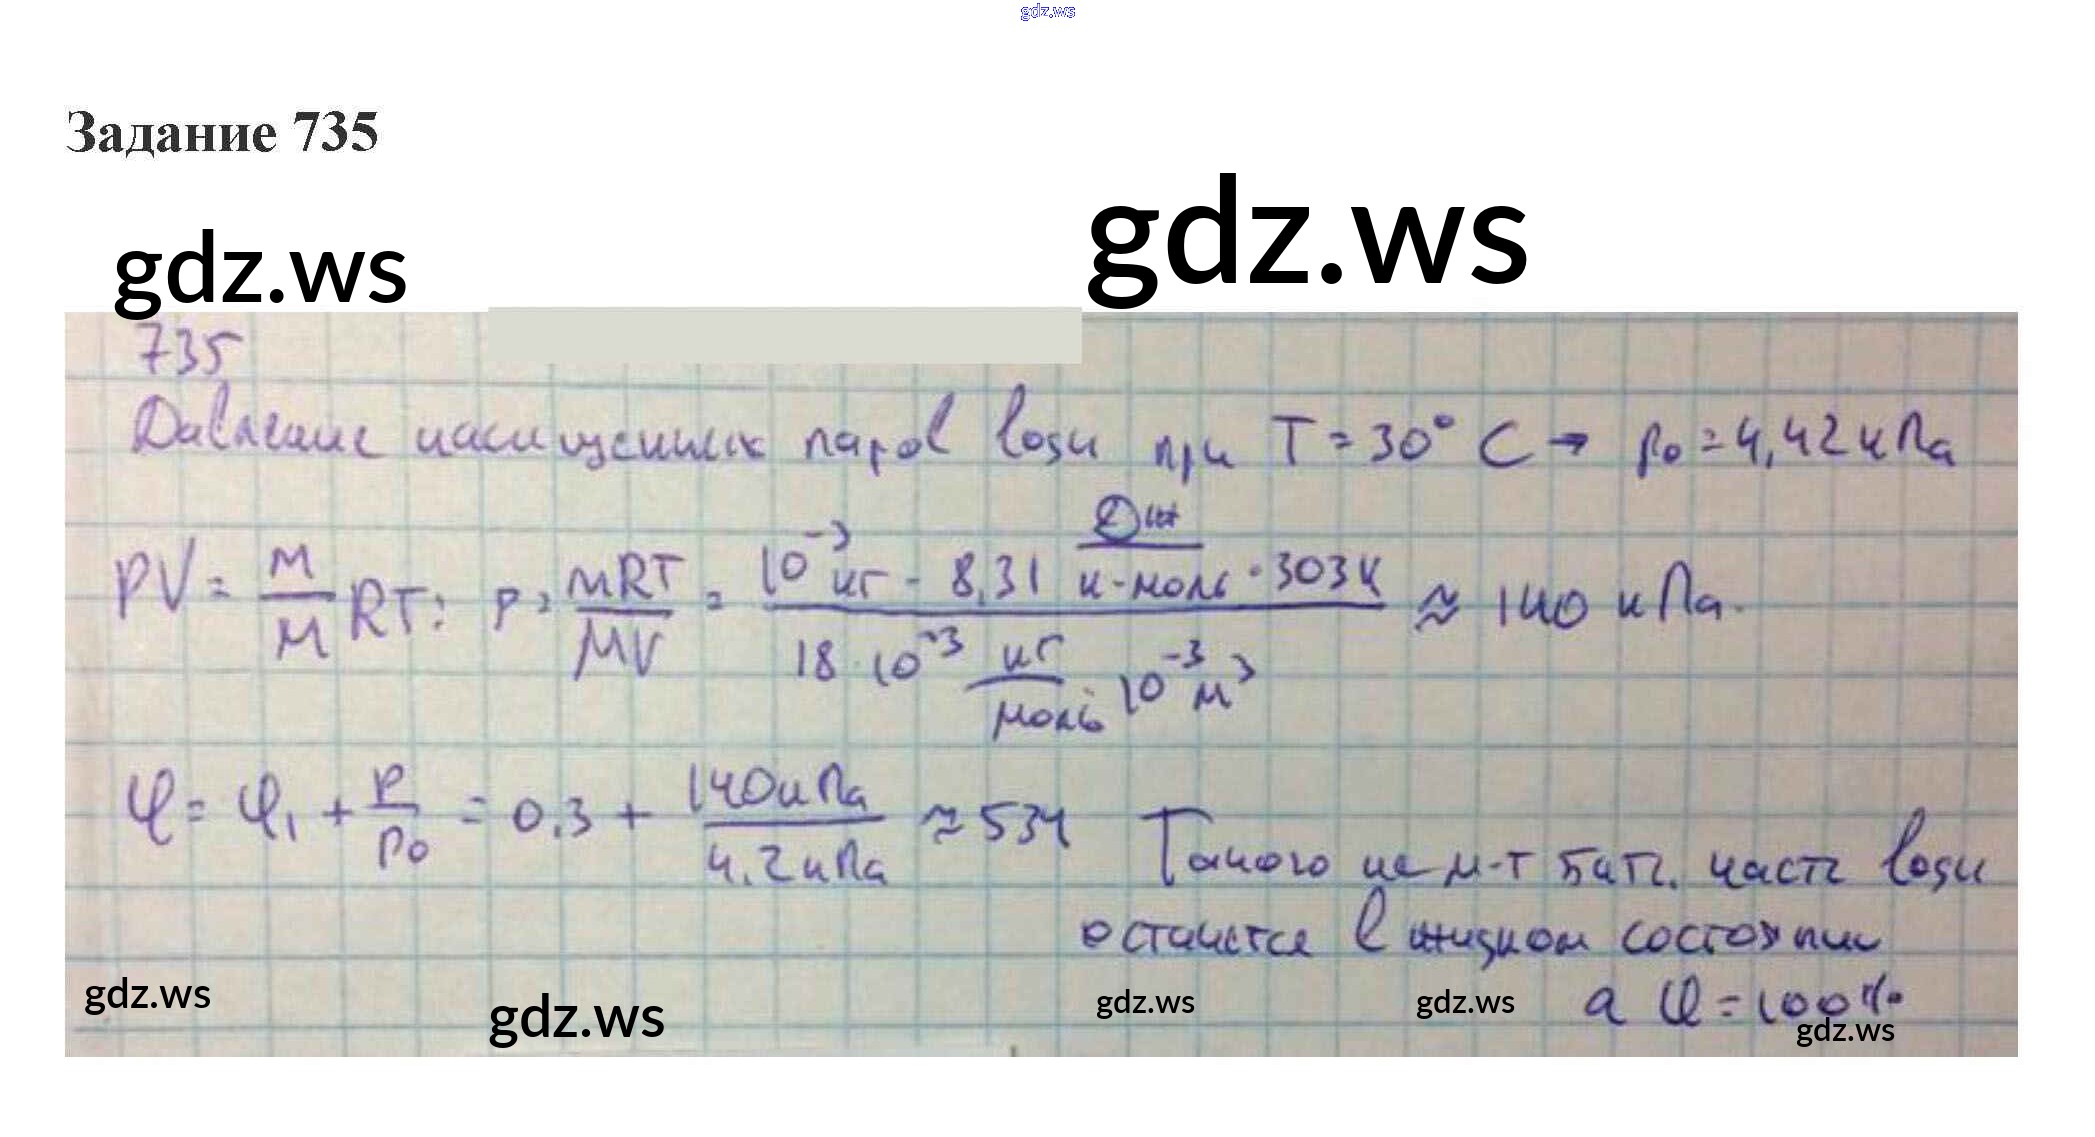 gdz.ws
Задание 735
gdz.ws
gdz.ws
735
Давление насыщенных паров воды при T = 30° C → p₀ = 4,42 кПа
PV = m/M RT; P = mRT/MV = 10⁻³ кг · 8,31 Дж/К·моль · 303К / 18·10⁻³ кг/моль · 10⁻³ м³ ≈ 140 кПа.
φ = φ₁ + P/P₀ = 0,3 + 140кПа/4,2кПа ≈ 534 Такого не м-т быть. часть воды
останется в жидком состоянии
а φ = 100%
gdz.ws
gdz.ws
gdz.ws
gdz.ws
gdz.ws